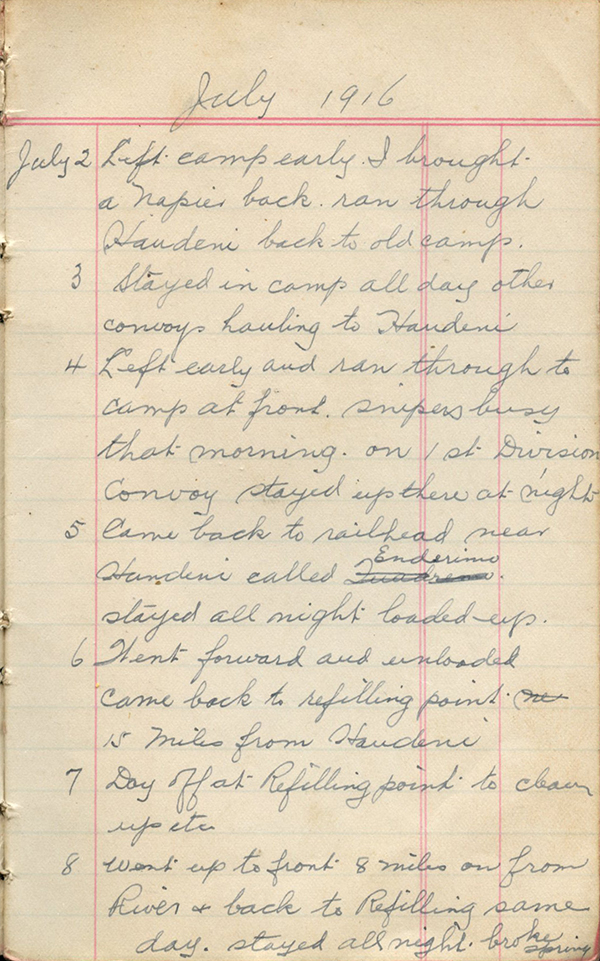 July 1916
July 2 Left camp early. I brought
a Napier back. ran through
Handeni back to old camp.
3 Stayed in camp all day other
convoys hauling to Handeni
4 Left early and ran through to
camp at front. snipers busy
that morning. on 1st Division
Convoy stayed up there at night
5 Came back to railhead near
Handeni called Enderimo
stayed all night loaded-up.
6 Went forward and unloaded
came back to refilling point
15 Miles from Handeni
7 Day off at Refilling point to clean
up etc
8 Went up to front 8 miles on from
River & back to Refilling same
day. stayed all night. broke
spring